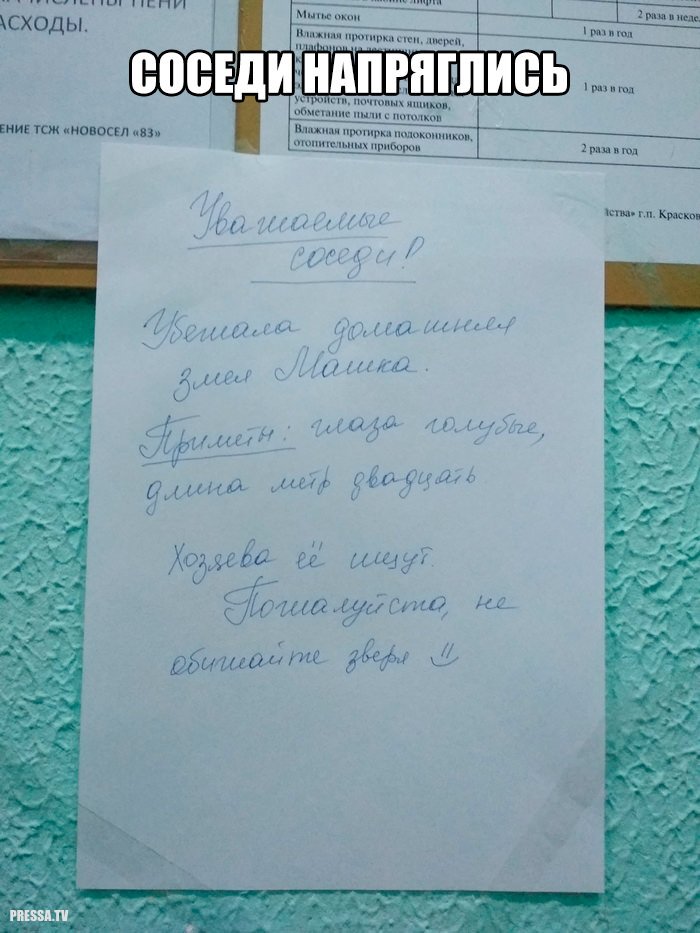 ЧИСЛЕНЫ ПЕНИ
АСХОДЫ.
ЕНИЕ ТСЖ «НОВОСЕЛ «83»
лифта
Мытье окон
2 раза в неде
1 раз в год
Влажная протирка стен, дверей,
плафонов на
устройств, почтовых ящиков,
обметание пыли с потолков
1 раз в год
Влажная протирка подоконников,
отопительных приборов
2 раза в год
йства» г.п. Красков
СОСЕДИ НАПРЯГЛИСЬ
Уважаемые
соседи!
Убежала домашняя
змея Машка.
Приметы: глаза голубые,
длина метр двадцать
Хозяева её ищут.
Пожалуйста, не
обижайте зверя
PRESSA.TV